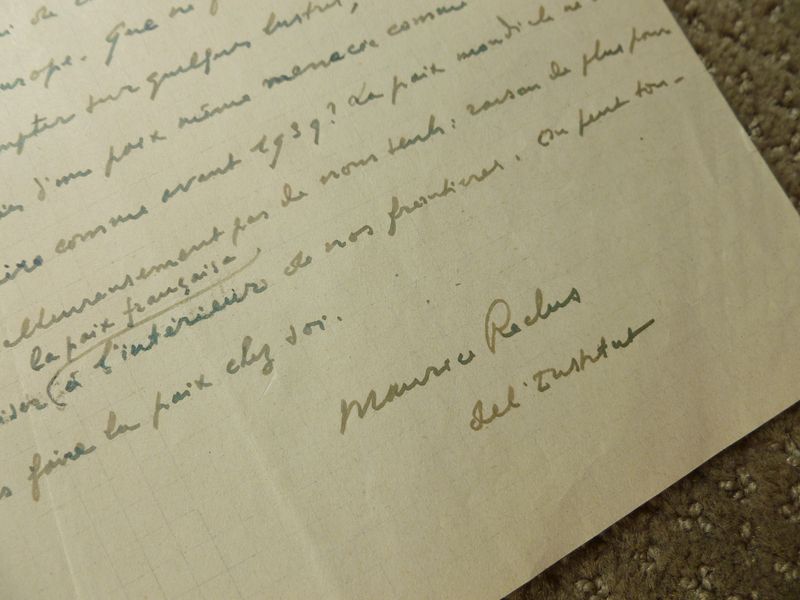 urope. Que ne
mpter sur quelques lustres,
d'une paix même menacée comme
comme avant 1939? La paix mondiale ne
alheureusement pas de nous seuls: raison de plus pour
la paix française,
à l'intérieur de nos frontières. On peut tou-
faire la paix chez soi.
Maurice Reclus
de l'Institut